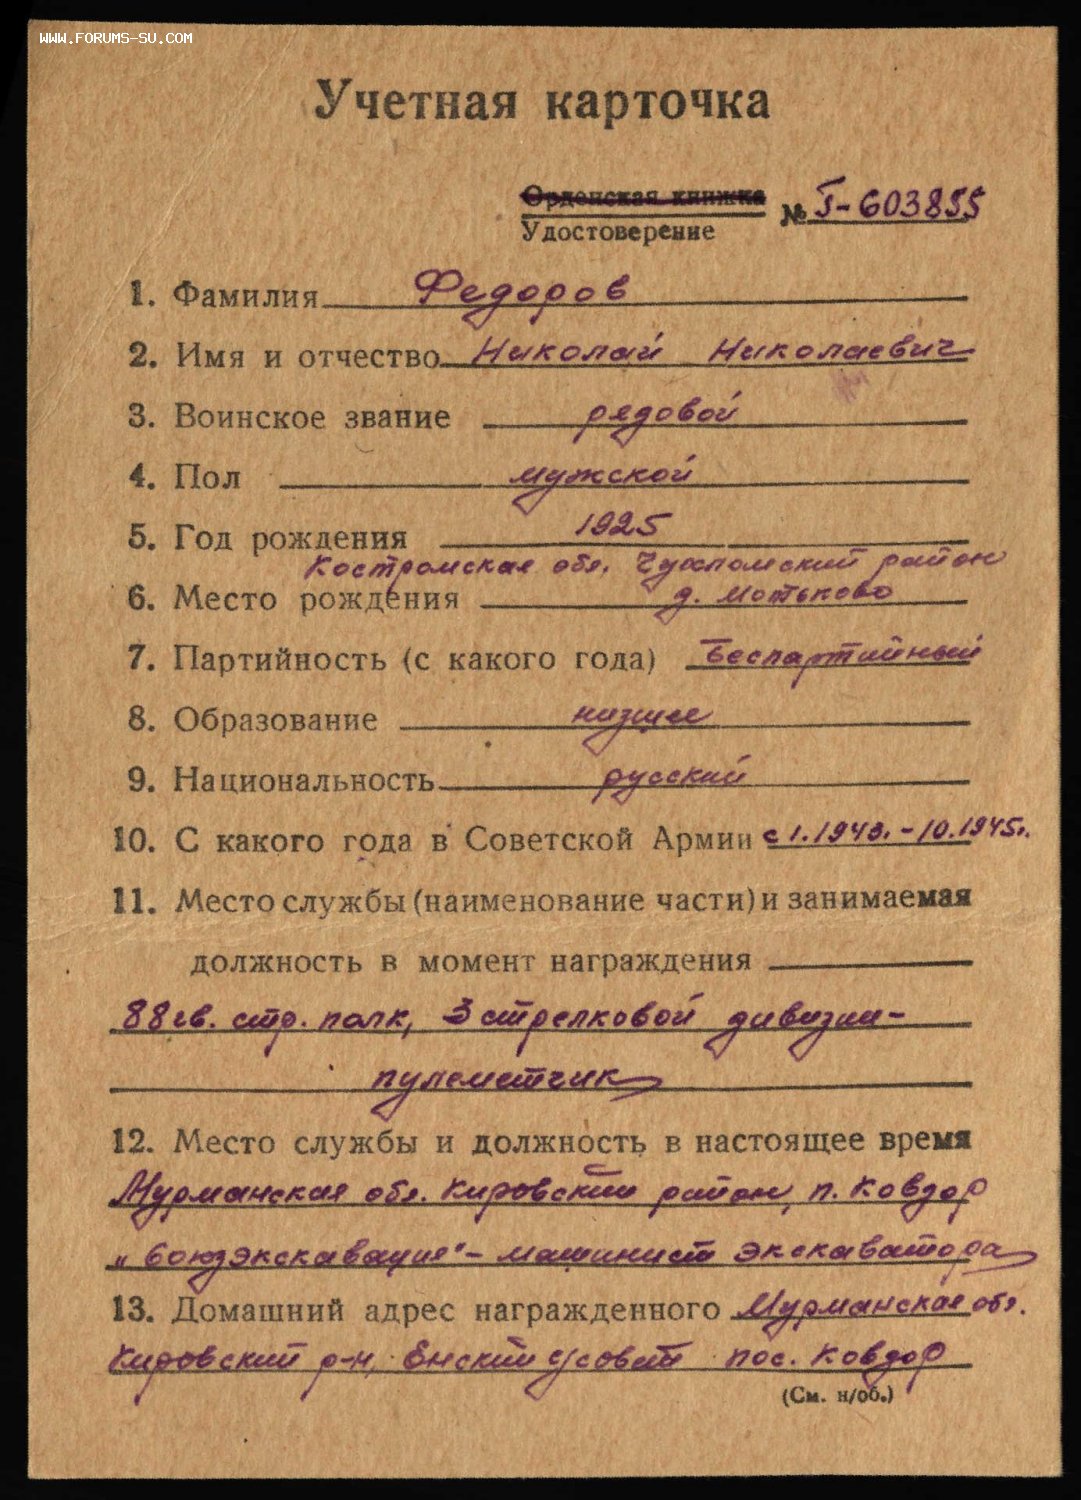 WWW.FORUMS-SU.COM
Учетная карточка
Орденская книжка
Удостоверение № Т-603855
1. Фамилия Федоров
2. Имя и отчество Николай Николаевич
3. Воинское звание рядовой
4. Пол мужской
5. Год рождения 1925
Костромская обл. Чухломский район
6. Место рождения д. Мотьково
7. Партийность (с какого года) Беспартийный
8. Образование низшее
9. Национальность русский
10. С какого года в Советской Армии с 1.1943. - 10.1945г.
11. Место службы (наименование части) и занимаемая
должность в момент награждения
88 гв. стр. полк, 3 стрелковой дивизии-
пулеметчик
12. Место службы и должность в настоящее время
Мурманская обл. Кировский район, п. Ковдор
"Союзэкскавация" - машинист экскаватора
13. Домашний адрес награжденного Мурманская обл.
Кировский р-н, Енский с/совет пос. Ковдор
(См. н/об.)